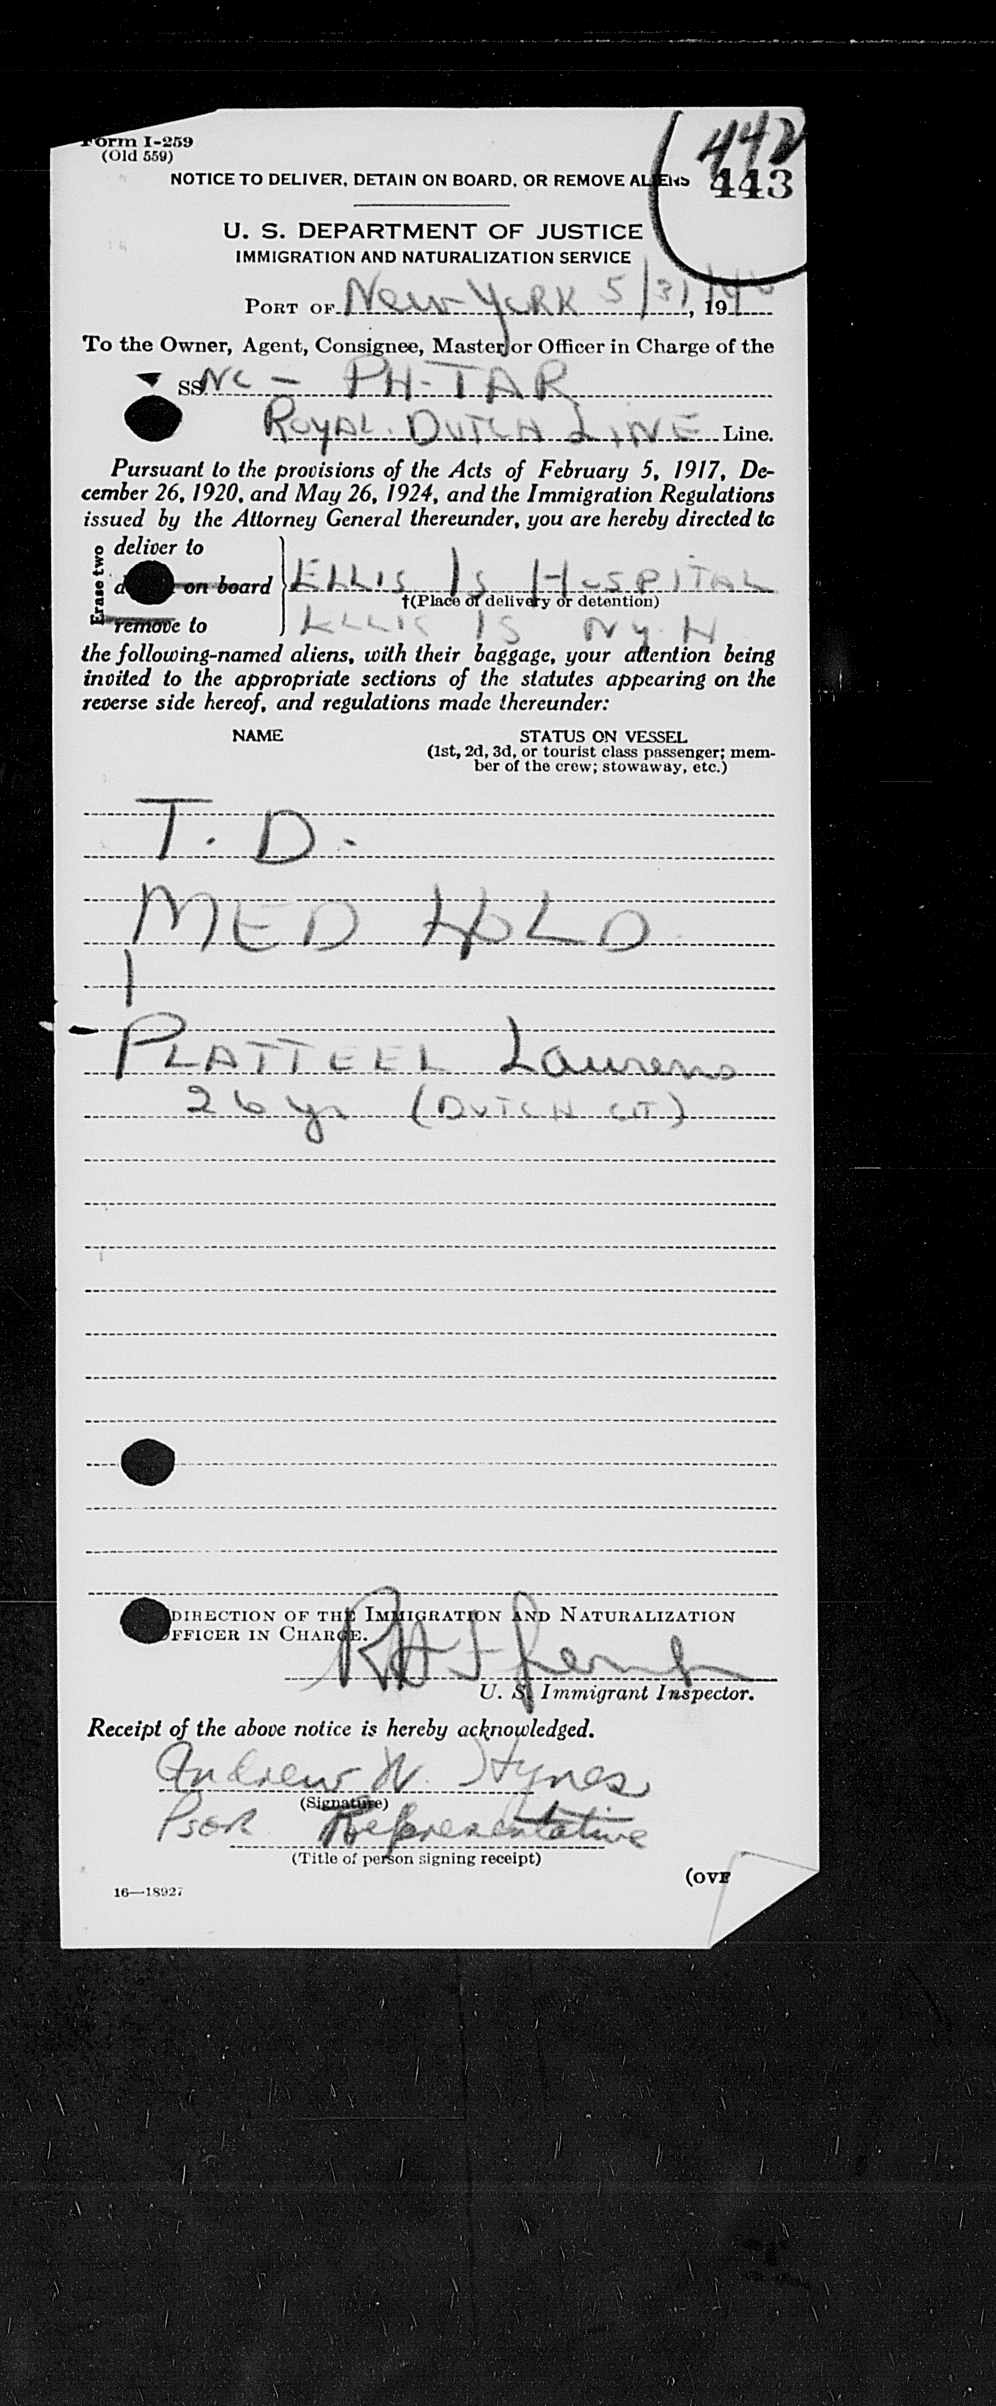 Form I-259
(Old 559)
442
443
NOTICE TO DELIVER, DETAIN ON BOARD, OR REMOVE ALIENS
U. S. DEPARTMENT OF JUSTICE
IMMIGRATION AND NATURALIZATION SERVICE
PORT OF New York 5/31, 1946
To the Owner, Agent, Consignee, Master or Officer in Charge of the
SS NC - PH-TAR
ROYAL DUTCH LINE Line.
Pursuant to the provisions of the Acts of February 5, 1917, De-
cember 26, 1920, and May 26, 1924, and the Immigration Regulations
issued by the Attorney General thereunder, you are hereby directed to
Erase two
deliver to
on board
remove to
ELLIS IS HOSPITAL
†(Place of delivery or detention)
ELLIS IS N Y H
the following-named aliens, with their baggage, your attention being
invited to the appropriate sections of the statutes appearing on the
reverse side hereof, and regulations made thereunder:
NAME
STATUS ON VESSEL
(1st, 2d, 3d, or tourist class passenger; mem-
ber of the crew; stowaway, etc.)
T. D.
MED HOLD
1
- PLATTEEL Laurens
26 yr (DUTCH CIT)
DIRECTION OF THE IMMIGRATION AND NATURALIZATION
FFICER IN CHARGE.
U. S. Immigrant Inspector.
Receipt of the above notice is hereby acknowledged.
Andrew W. Hynes
(Signature)
Psgr Representative
(Title of person signing receipt)
(OVE
16—18927